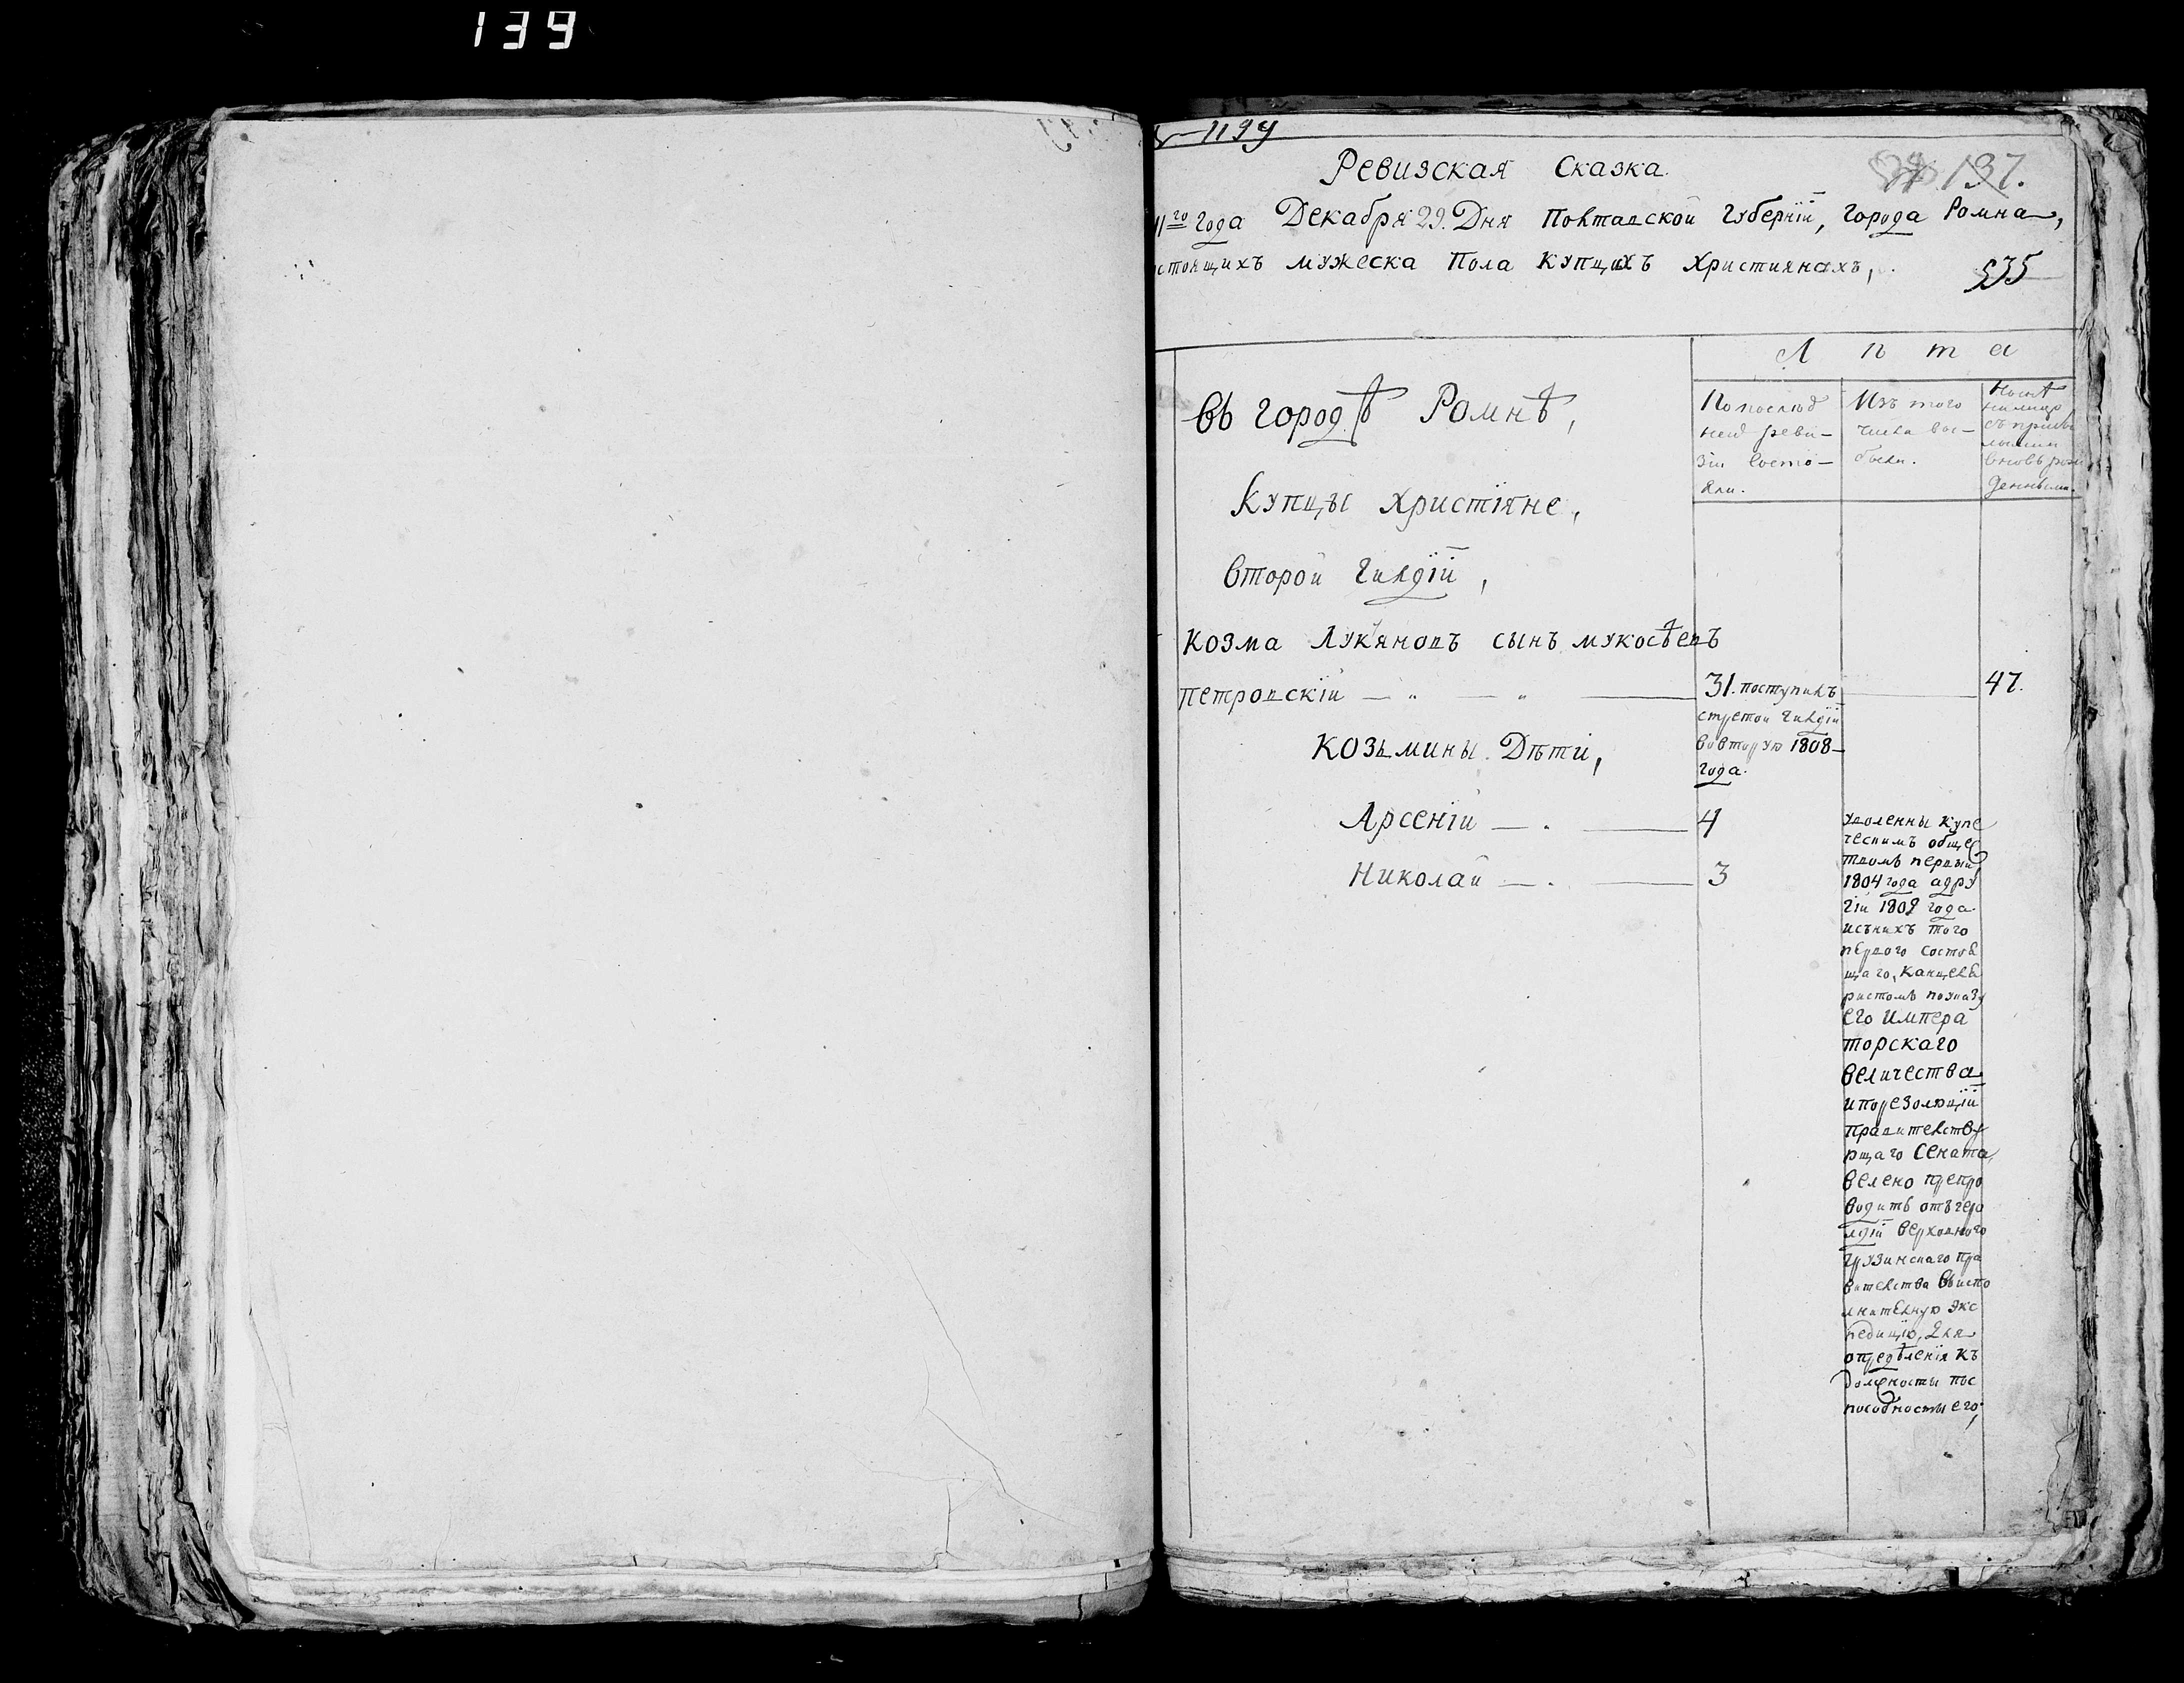 139
1199
Ревизская Сказка.
137.
11го Года Декабря 29. Дня Полтавской Губерніи, Города Ромна,
стоящихъ мужеска Пола Купцихъ Християнахъ,
535
Лѣта
По послѣд
ней реви-
зіи состо-
яли.
Изъ того
числа вы-
были.
Нынѣ
на лицо
съ прибы
лыми
вновь рож
денными.
въ городѣ Ромнѣ,
Купцы Христіяне,
Второй Гилдіи,
Козма Лукяновъ сынъ мукосѣевъ
Петровскій 31. поступилъ 47.
стретой Гилдіи
вовторую 1808-
года.
Козьмины Дѣти,
Арсеній 4
Николай 3
уволенны купе
ческимъ обще
твомъ первый
1804 года адру
гіи 1809 года
изъ нихъ того
первого состоя
щаго, канцеля
ристомъ поуказу
его Импера
торскаго
величества
ипорезолюціи
Правителству
ющаго Сената,
велено препро
водить отъ геро
лдіи верховного
грузинскаго пра
вителства въиспо
лнителную экс
педицію, для
опредѣленія къ
должности пос
пособности его,